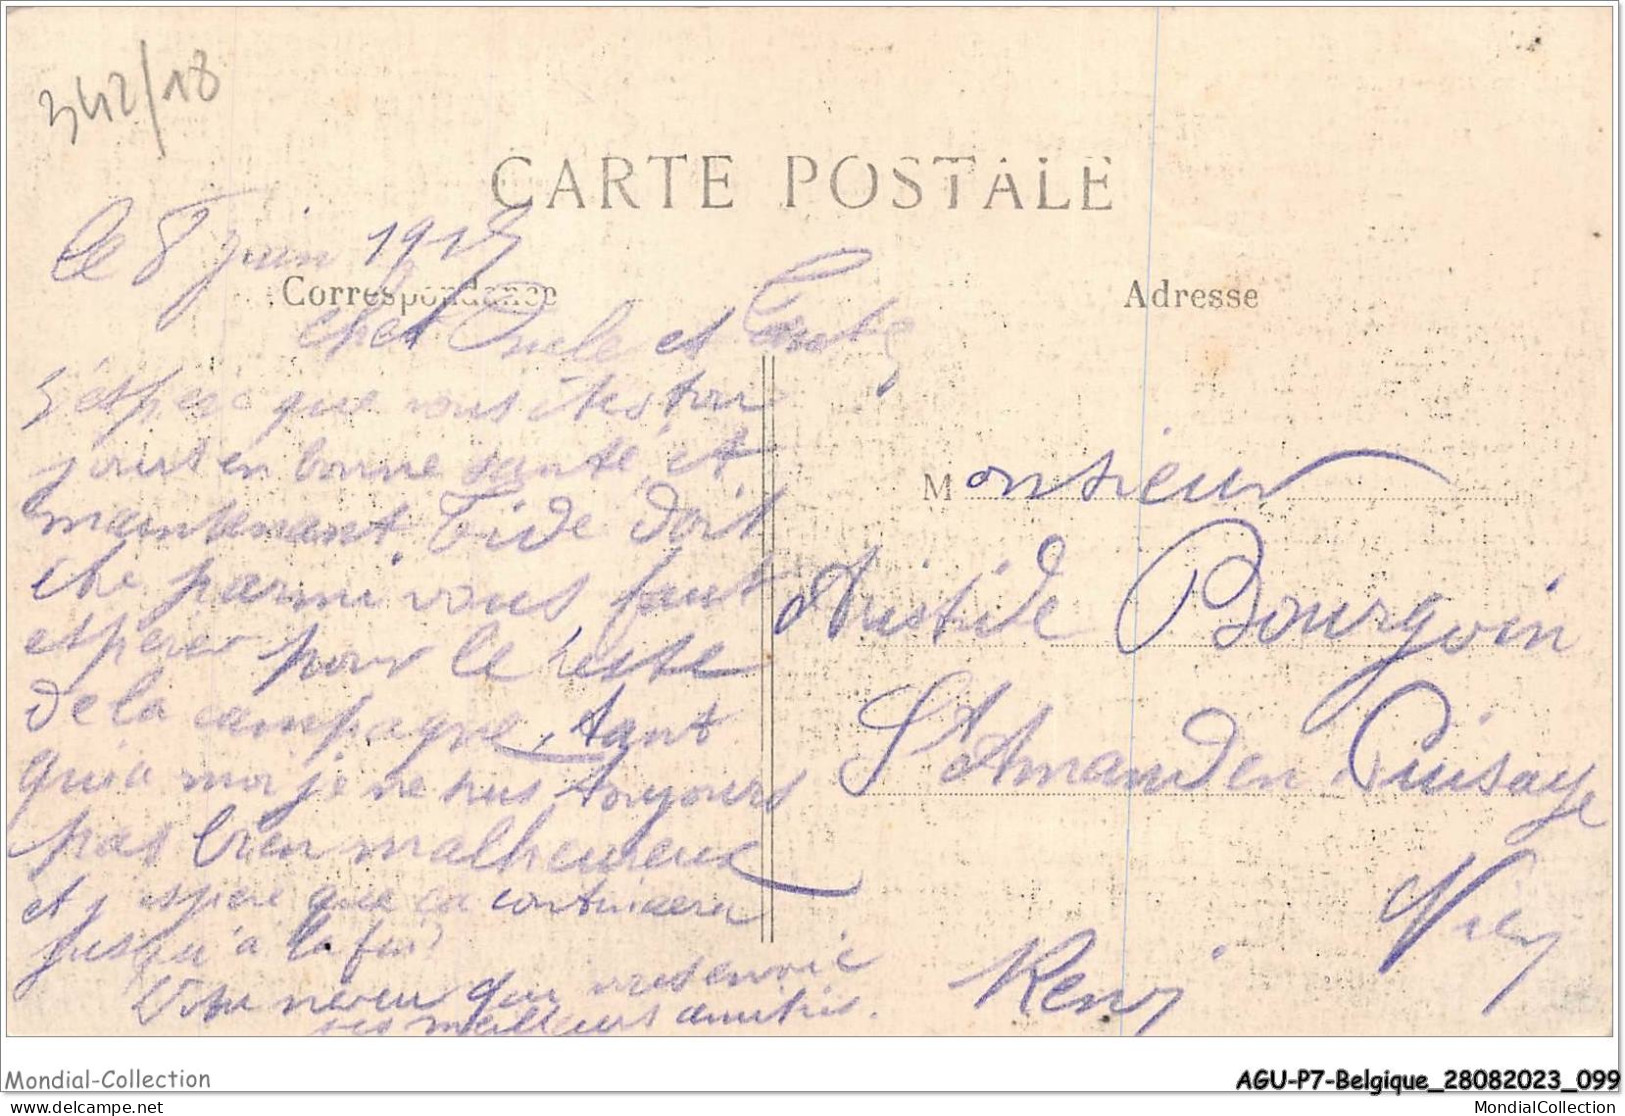 342/18
CARTE POSTALE
le 8 juin 1915
Correspondance
Adresse
cher Oncle et Tante
J'espere que vous êtes tou
jours en bonne santé et
maintenant. doit
être parmi vous faut
esperer pour le reste
de la campagne, tant
qu'a moi je ne suis toujours
pas bien malheureux
et j'espere que ca continuera
jusqu'à la fin
Votre neveu qui vous envoie
ses meilleurs amitiés.
Remi
Monsieur
Aristide Bourgoin
St Amand en Puisaye
Nievre
Mondial-Collection
delcampe.net
AGU-P7-Belgique_28082023_099
MondialCollection